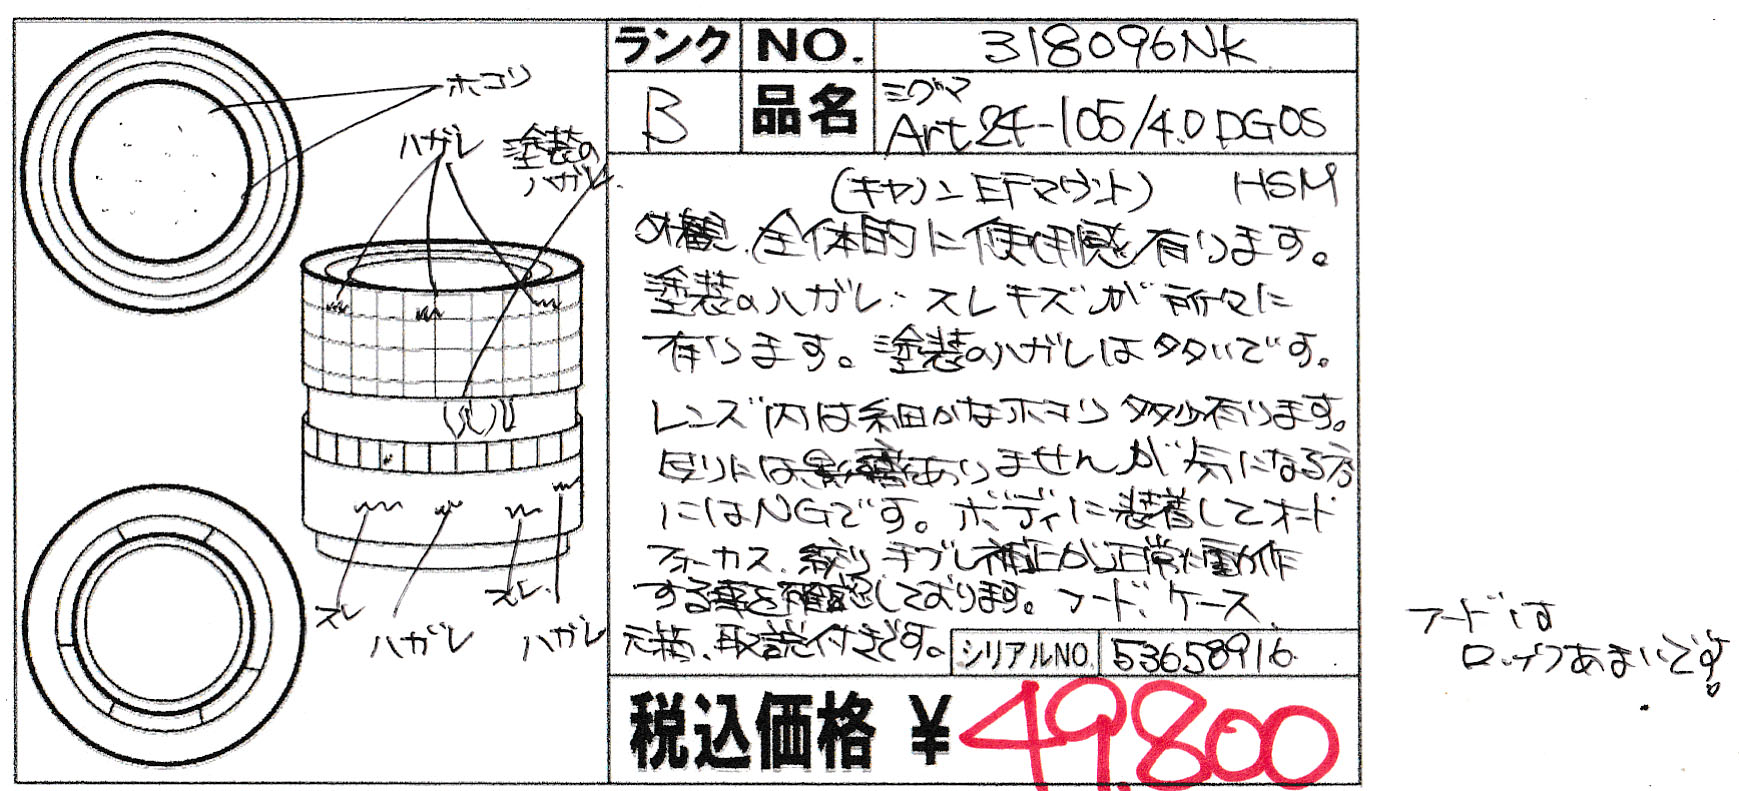 ホコリ
ハガレ
塗装の
ハガレ
スレ
ハガレ
スレ
ハガレ
ランク NO. 318096NK
B 品名 シグマ
Art 24-105/4.0 DG OS
(キヤノン EFマウント) HSM
外観、全体的に使用感有ります。
塗装のハガレ、スレキズが所々に
有ります。塗装のハガレは多いです。
レンズ内は細かなホコリ多少有ります。
写りには影響ありませんが気になる方
にはNGです。ボディに装着してオート
フォーカス、絞り、手ブレ補正が正常に動作
する事を確認しております。フード、ケース、
元箱、取説付きです。 シリアルNO. 53658916
税込価格 ¥49,800
フードは
ロックあまいです。